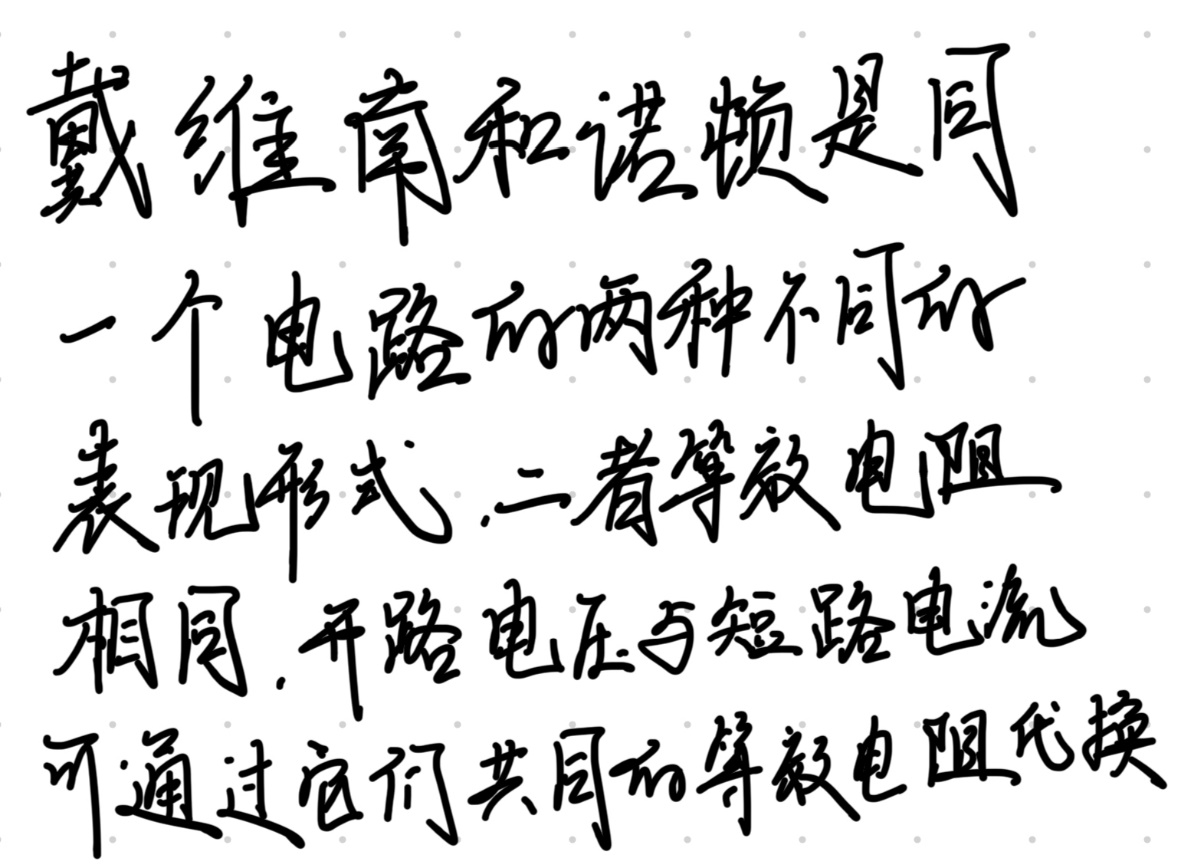 戴维南和诺顿是同
一个电路的两种不同的
表现形式,二者等效电阻
相同,开路电压与短路电流
可通过它们共同的等效电阻代换